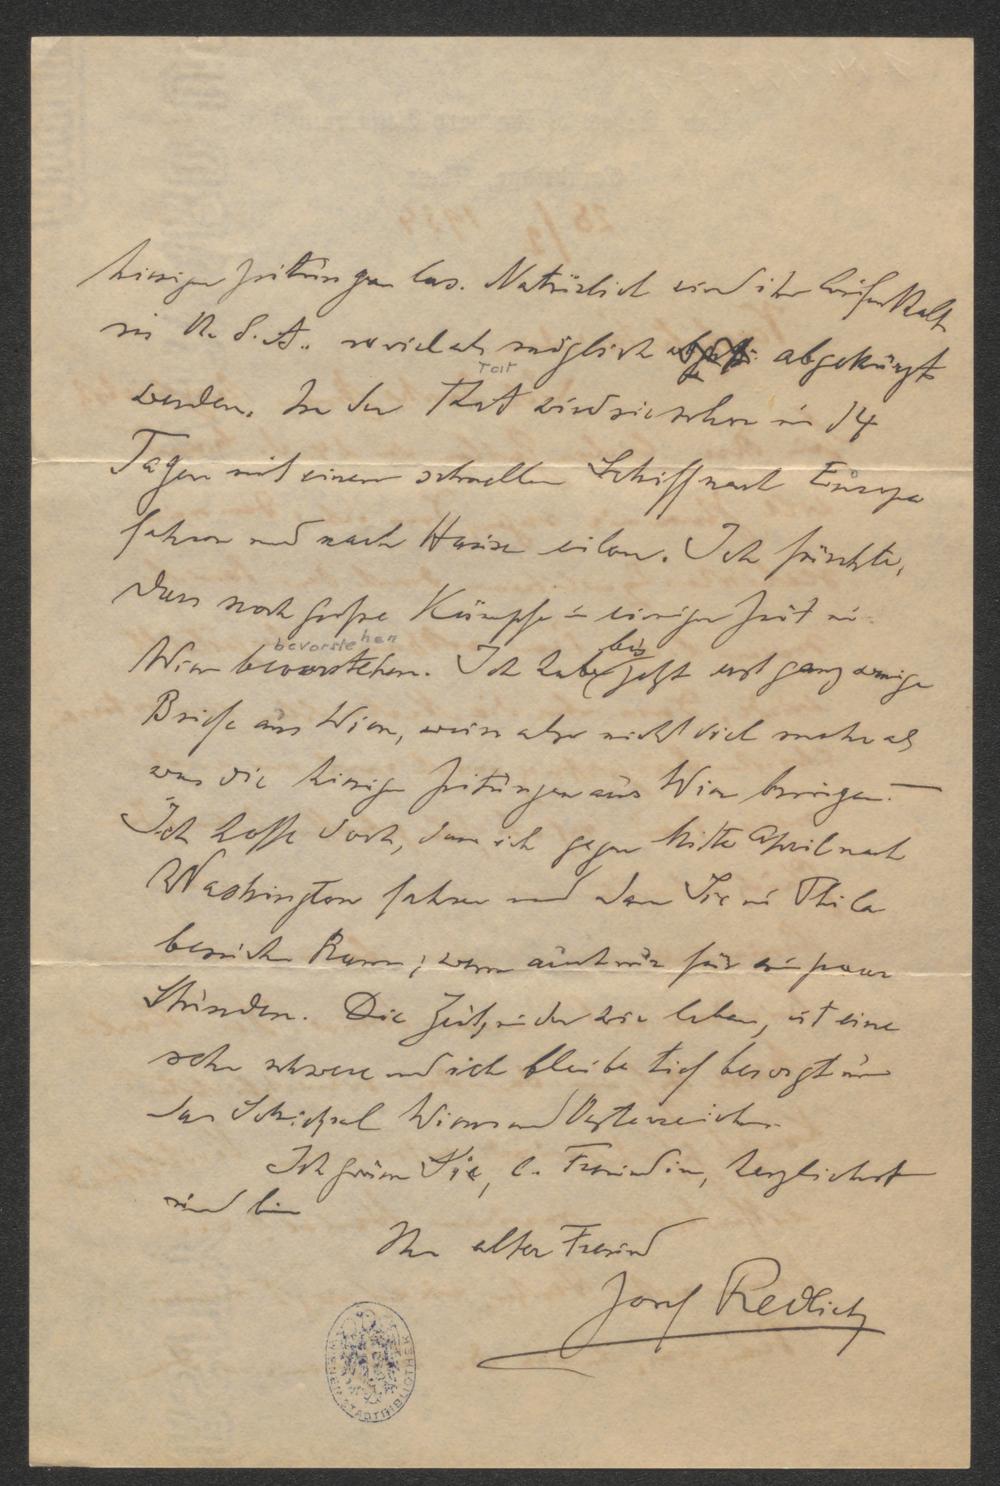 hiesigen Zeitungen las. Natürlich wird ihr Aufenthalt
in U. S. A., soviel als möglich abgekürzt
Tat
werden. In der That wird sie schon in 14
Tagen mit einem schnellen Schiff nach Europa
fahren und nach Hause eilen. Ich fürchte,
dass noch große Kämpfe in einiger Zeit in
bevorstehen
bis
Wien bevorstehen. Ich habe jetzt erst ganz wenige
Briefe aus Wien, weiss aber nicht viel mehr als
was die hiesigen Zeitungen aus Wien bringen. –
Ich hoffe doch, dass ich gegen Mitte April nach
Washington fahren und dann Sie in Phila
besuchen kann, wenn auch nur für ein paar
Stunden. Die Zeit, in der wir leben, ist eine
sehr schwere und ich bleibe tief besorgt um
das Schicksal Wiens und Oesterreichs.
Ich grüsse Sie, l. Freundin, herzlichst
und bin
Ihr alter Freund
Josef Redlich
WIENER STADTBIBLIOTHEK